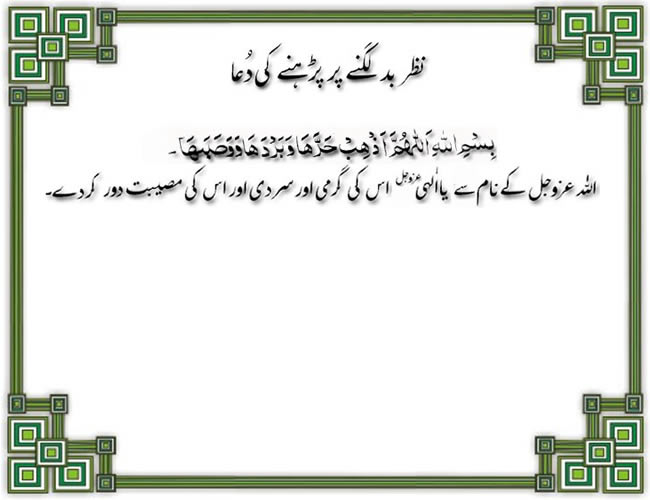 نظر بد لگنے پر پڑہنے کی دُعا
بِسْمِ اللهِ اَللّٰهُمَّ اَذْهِبْ حَرَّهَا وَبَرْدَهَا وَوَصَبَهَا۔
اللہ عزوجل کے نام سے یا الٰہی عزوجل اس کی گرمی اور سردی اور اس کی مصیبت دور کردے۔